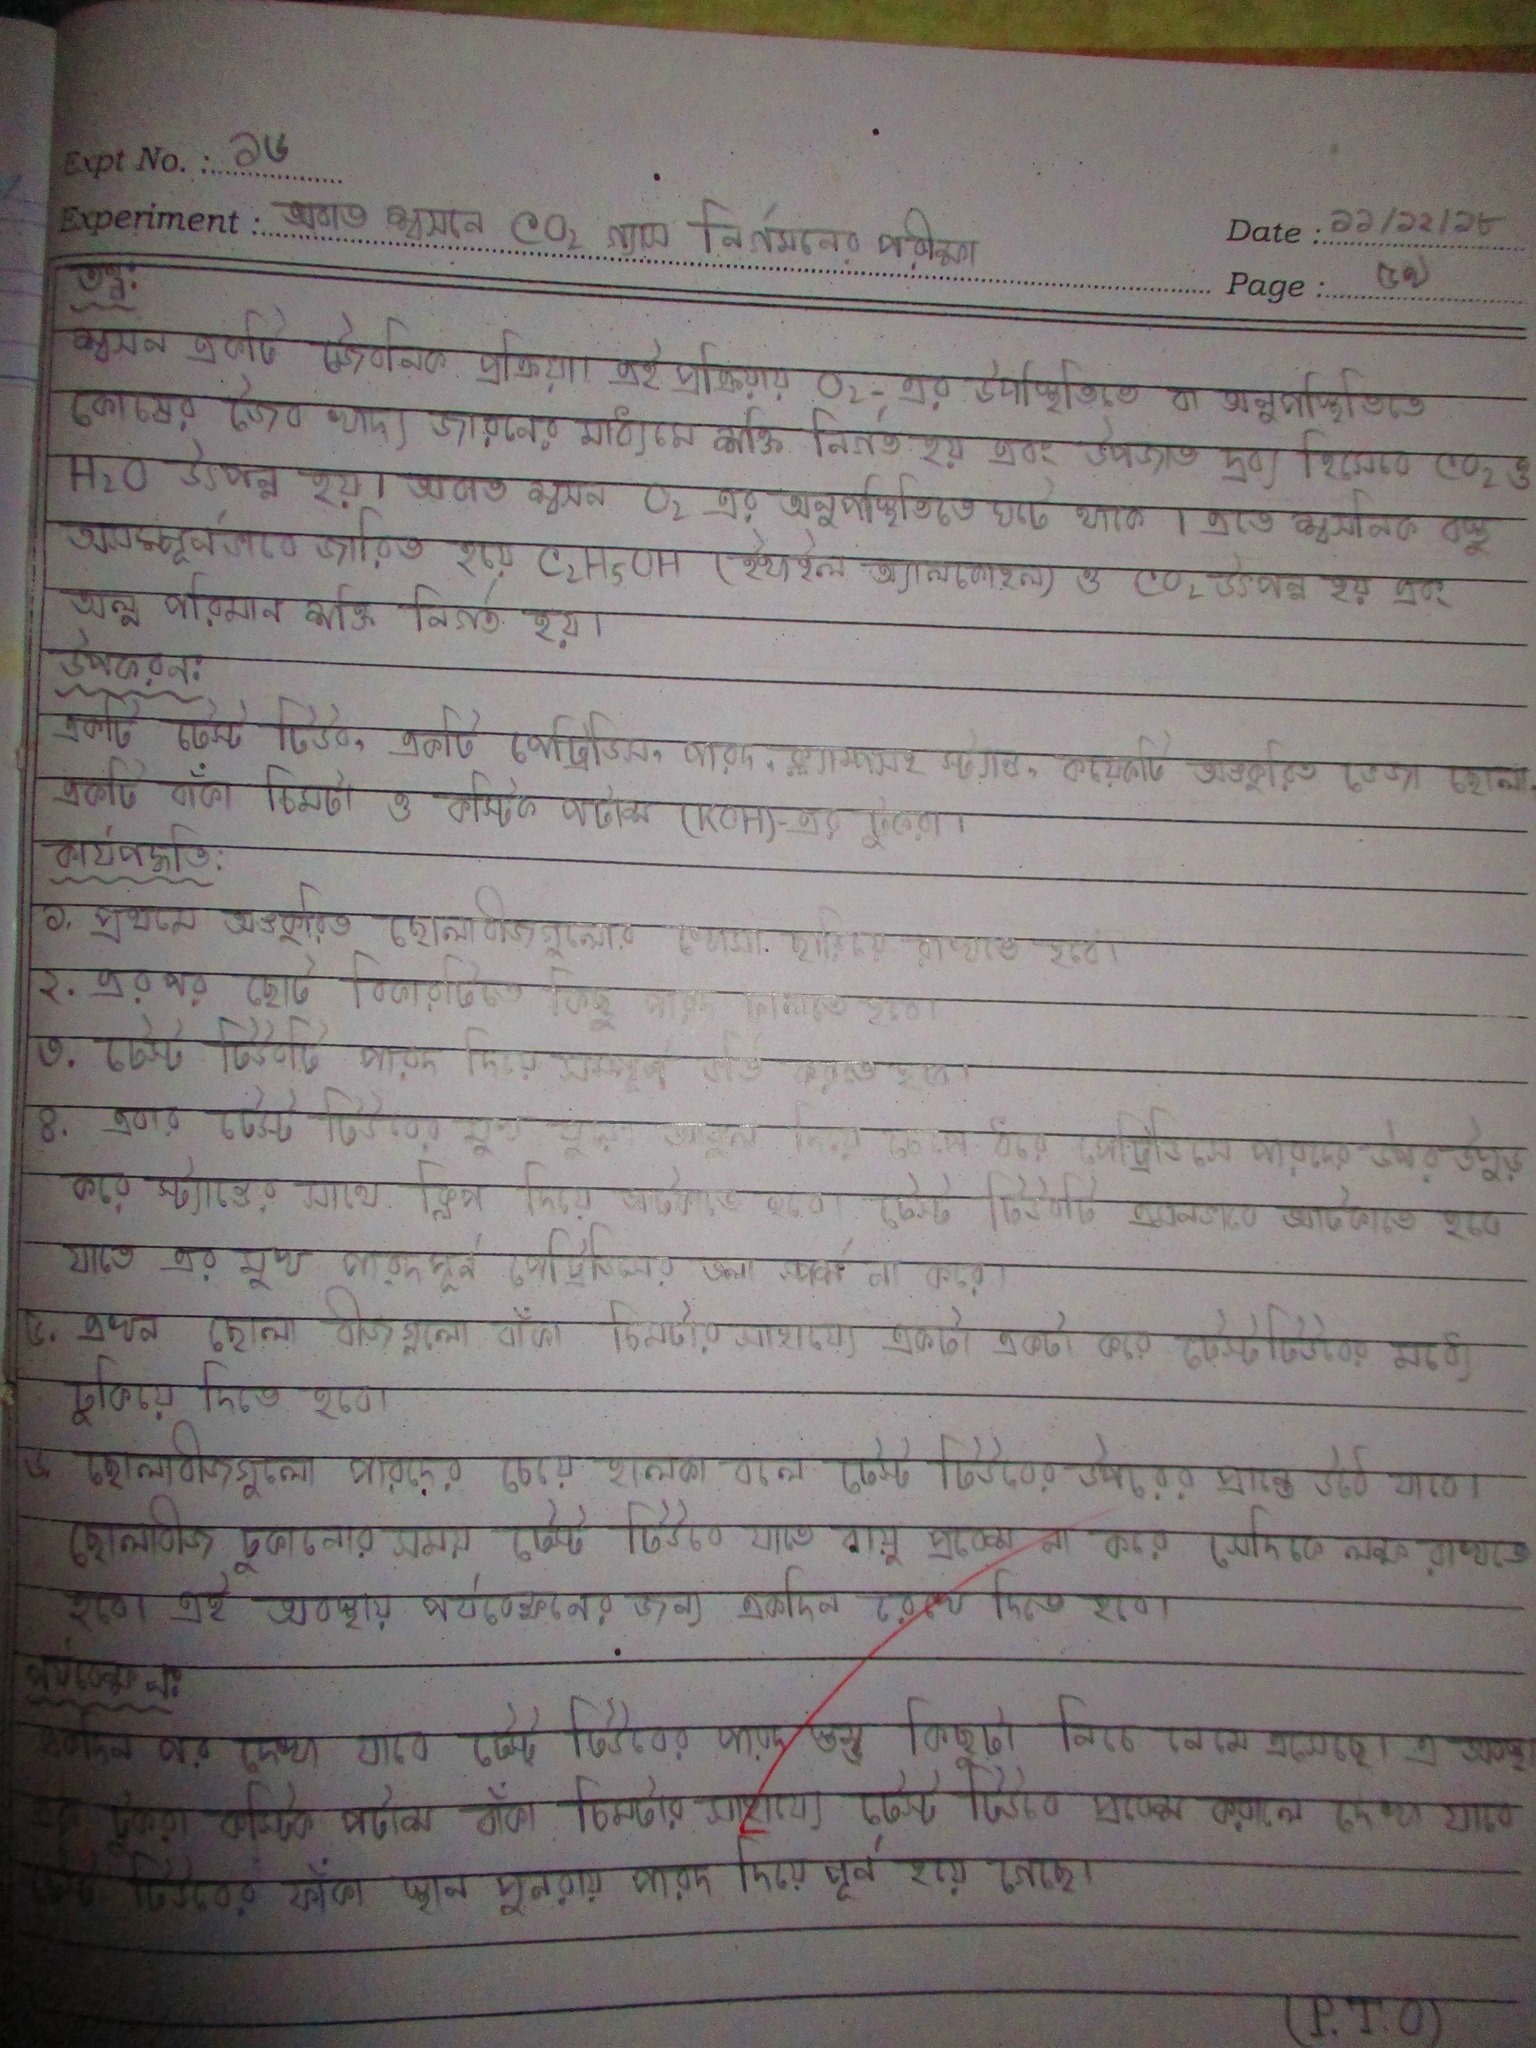 Expt No. : ১৬
Experiment : অবাত শ্বসনে CO₂ গ্যাস নির্গমনের পরীক্ষা
Date : ১১/১২/১৮
Page : ৫৭
তত্ত্ব:
শ্বসন একটি জৈবনিক প্রক্রিয়া। এই প্রক্রিয়ায় O₂-এর উপস্থিতিতে বা অনুপস্থিতিতে
কোষের জৈব খাদ্য জারনের মাধ্যমে শক্তি নির্গত হয় এবং উপজাত দ্রব্য হিসেবে CO₂ ও
H₂O উৎপন্ন হয়। অবাত শ্বসন O₂ এর অনুপস্থিতিতে ঘটে থাকে। এতে শ্বসনিক বস্তু
অসম্পূর্নভাবে জারিত হয়ে C₂H₅OH (ইথাইল অ্যালকোহল) ও CO₂ উৎপন্ন হয় এবং
অল্প পরিমান শক্তি নির্গত হয়।
উপকরন:
একটি টেস্ট টিউব, একটি পেট্রিডিস, পারদ, ক্ল্যাম্পসহ স্ট্যান্ড, কয়েকটি অঙ্কুরিত ভেজা ছোলা,
একটি বাঁকা চিমটা ও কস্টিক পটাশ (KOH)-এর টুকরা।
কার্যপদ্ধতি:
১. প্রথমে অঙ্কুরিত ছোলাবীজগুলোর খোসা ছাড়িয়ে রাখতে হবে।
২. এরপর ছোট বিকারটিতে কিছু পারদ ঢালতে হবে।
৩. টেস্ট টিউবটি পারদ দিয়ে সম্পূর্ন ভর্তি করতে হবে।
৪. এবার টেস্ট টিউবের মুখ বৃদ্ধা আঙ্গুল দিয়ে চেপে ধরে পেট্রিডিসে পারদের উপর উপুড়
করে স্ট্যান্ডের সাথে ক্লিপ দিয়ে আটকাতে হবে। টেস্ট টিউবটি এমনভাবে আটকাতে হবে
যাতে এর মুখ পারদপূর্ন পেট্রিডিসের তলা স্পর্শ না করে।
৫. এখন ছোলা বীজগুলো বাঁকা চিমটার সাহায্যে একটা একটা করে টেস্টটিউবের মধ্যে
ঢুকিয়ে দিতে হবে।
৬. ছোলাবীজগুলো পারদের চেয়ে হালকা বলে টেস্ট টিউবের উপরের প্রান্তে উঠে যাবে।
ছোলাবীজ ঢুকানোর সময় টেস্ট টিউবে যাতে বায়ু প্রবেশ না করে সেদিকে লক্ষ রাখতে
হবে। এই অবস্থায় পর্যবেক্ষনের জন্য একদিন রেখে দিতে হবে।
পর্যবেক্ষন:
একদিন পর দেখা যাবে টেস্ট টিউবের পারদ স্তম্ভ কিছুটা নিচে নেমে এসেছে। এ অবস্থা
এক টুকরা কস্টিক পটাশ বাঁকা চিমটার সাহায্যে টেস্ট টিউবে প্রবেশ করালে দেখা যাবে
টেস্ট টিউবের ফাঁকা স্থান পুনরায় পারদ দিয়ে পূর্ন হয়ে গেছে।
(P.T.O)